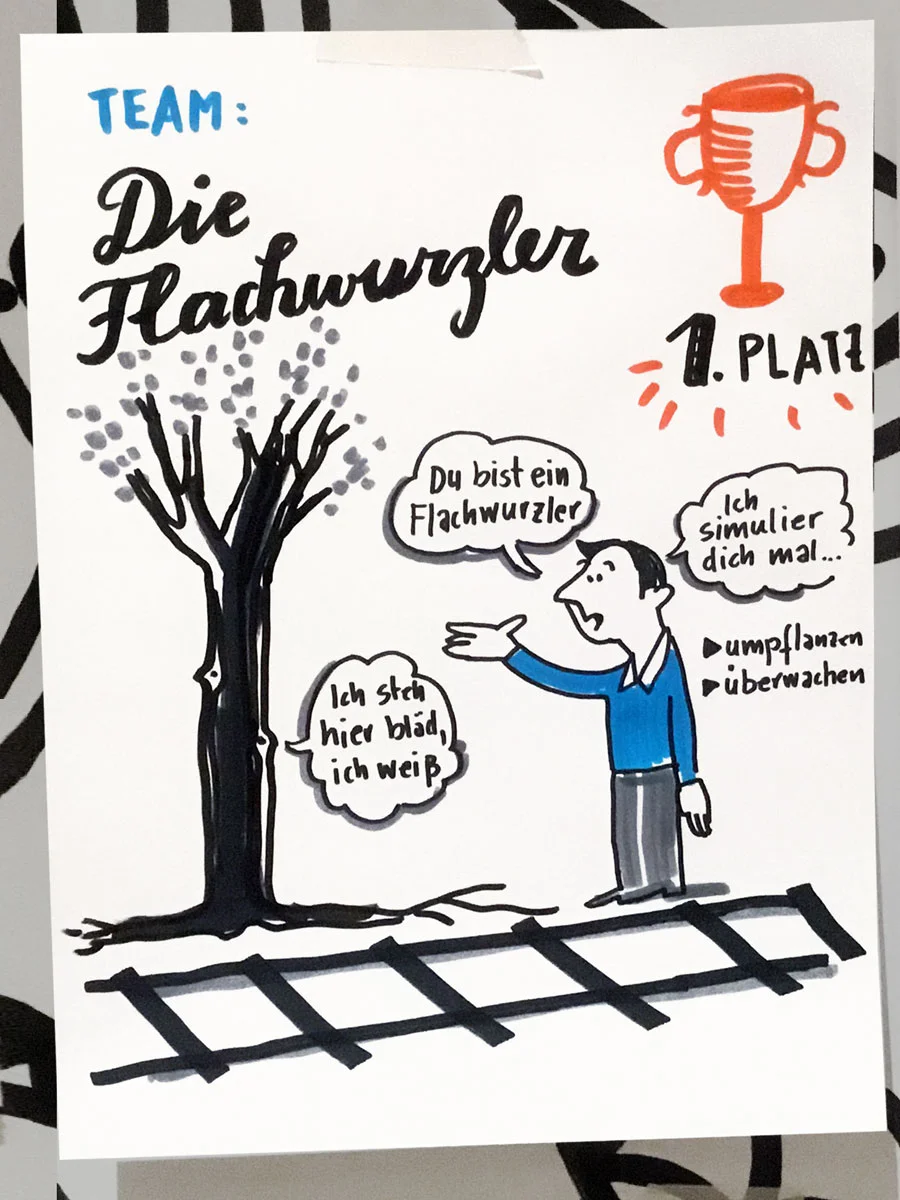 TEAM:
Die
Flachwurzler
1. PLATZ
Du bist ein
Flachwurzler
Ich
simulier
dich mal...
▶umpflanzen
▶überwachen
Ich steh
hier bläd,
ich weiß